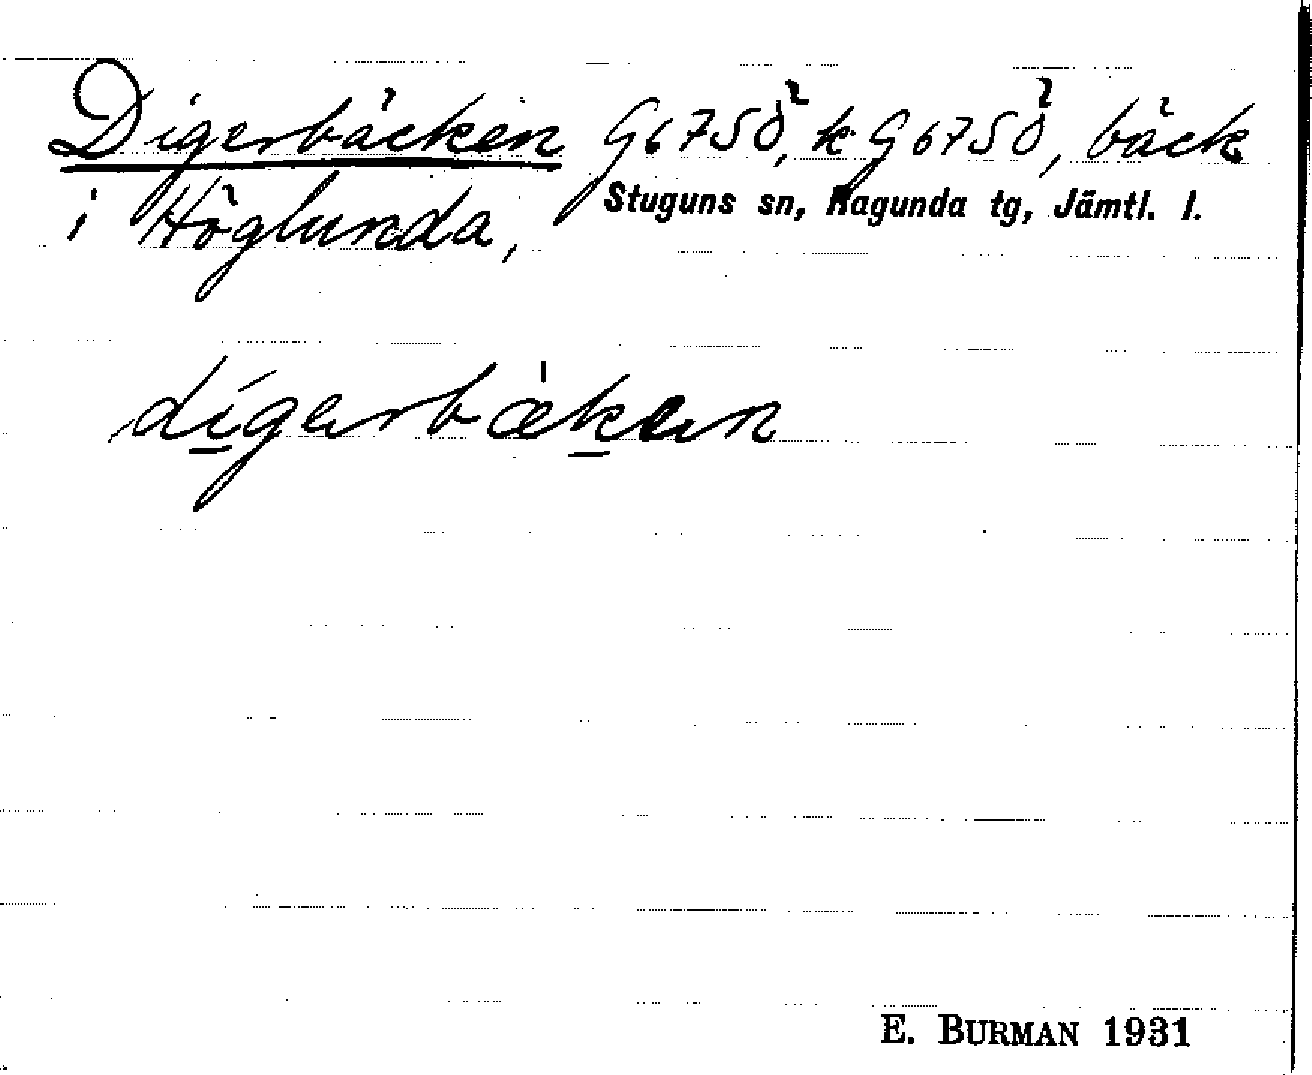 Digerbäcken G675Ö, k G675Ö, bäck
i Höglunda, Stuguns sn, Ragunda tg, Jämtl. l.
di̲gerbæk̲en
E. BURMAN 1931